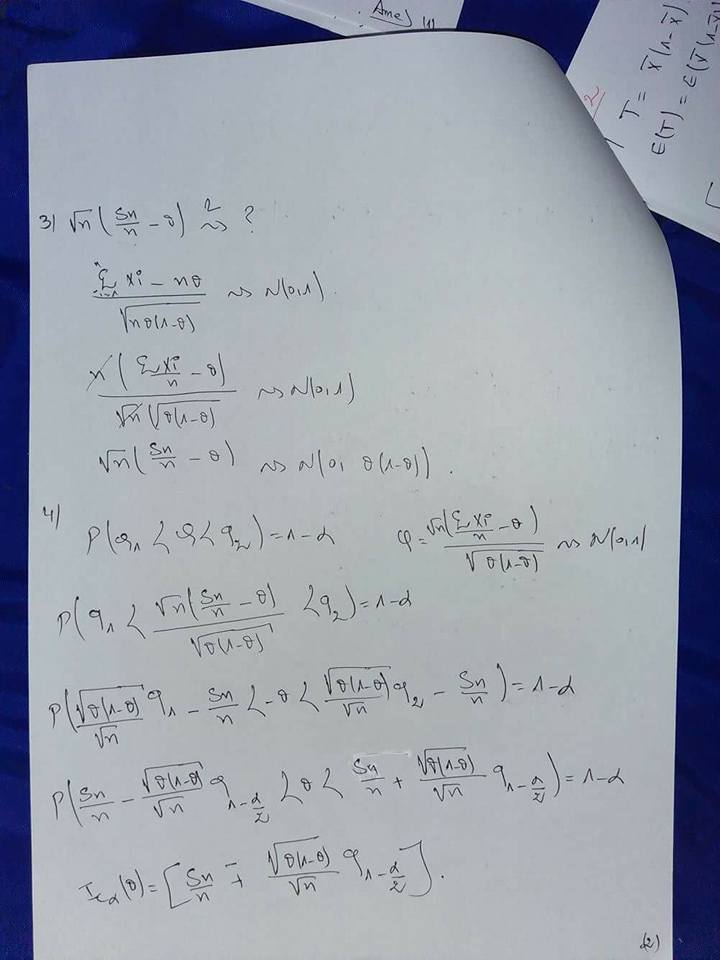 Ame)
T = X̄(1-X̄)
E(T) = E(X̄(1-X̄)
3) √n (Sn/n - θ) ~ ?
(Σ Xi - nθ) / √(nθ(1-θ)) ~ N(0,1).
n (ΣXi/n - θ) / (√n √(θ(1-θ))) ~ N(0,1)
√n (Sn/n - θ) ~ N(0, θ(1-θ)).
4) P(q₁ < Q < q₂) = 1-α φ = √n (ΣXi/n - θ) / √(θ(1-θ)) ~ N(0,1)
P(q₁ < √n (Sn/n - θ) / √(θ(1-θ)) < q₂) = 1-α
P(√(θ(1-θ))/√n q₁ - Sn/n < -θ < √(θ(1-θ))/√n q₂ - Sn/n) = 1-α
P(Sn/n - √(θ(1-θ))/√n q_{1-α/2} < θ < Sn/n + √(θ(1-θ))/√n q_{1-α/2}) = 1-α
I_{cα}(θ) = [Sn/n ∓ √(θ(1-θ))/√n q_{1-α/2}].
(2)